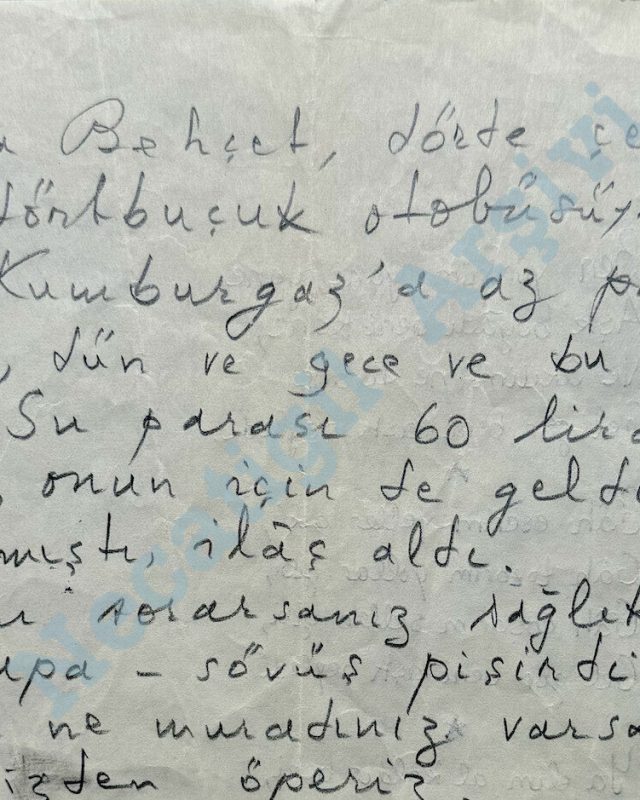 Behçet, dörde çe
dörtbuçuk otobüsüy
Kumburgaz'a az p
, dün ve gece ve bu
Su parası 60 lira
, onun için de geld
mıştı, ilâç aldı.
sorarsanız sağlık
apa - sövüş pişirdi
ne muradınız varsa
izden öperiz.
Necatigil Arşivi